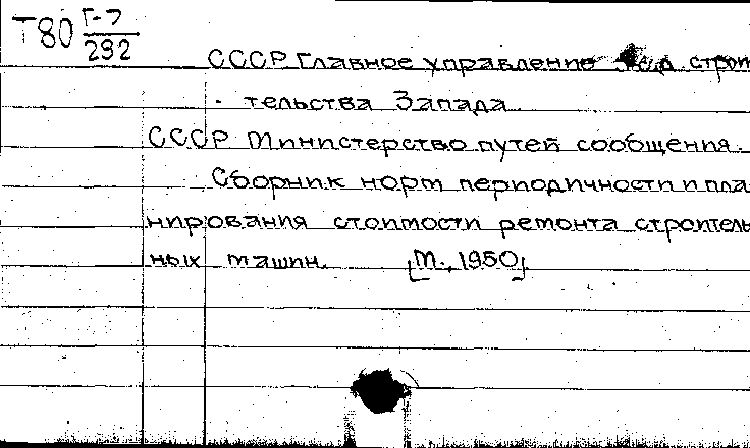 Т80 Г-7
292
СССР Главное управление ж.д. строи
тельства Запада
СССР Министерство путей сообщения.
Сборник норм периодичности и пла
нирования стоимости ремонта строитель
ных машин. [М., 1950]